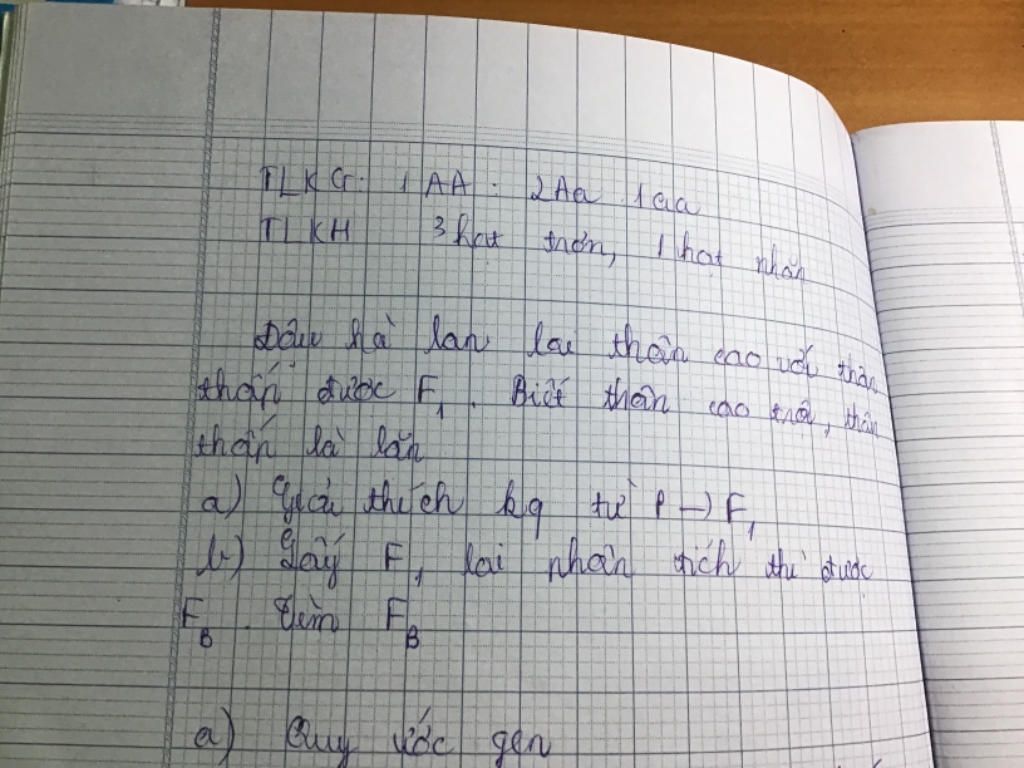 TLKG: 1 AA : 2Aa 1aa
TLKH 3 hạt trơn, 1 hạt nhăn
Đậu hà lan lai thân cao với thân
thấp được F1. Biết thân cao trội, thân
thấp là lặn
a) Giải thích kq từ P → F1
b) Lấy F1 lai phân tích thì được
FB. Tìm FB
a) Quy ước gen